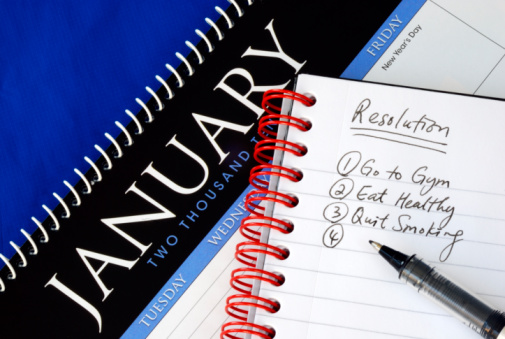 JANUARY
TWO THOUSAND
TUESDAY
FRIDAY
New Year's Day
Resolution
① Go to Gym
② Eat Healthy
③ Quit Smoking
④